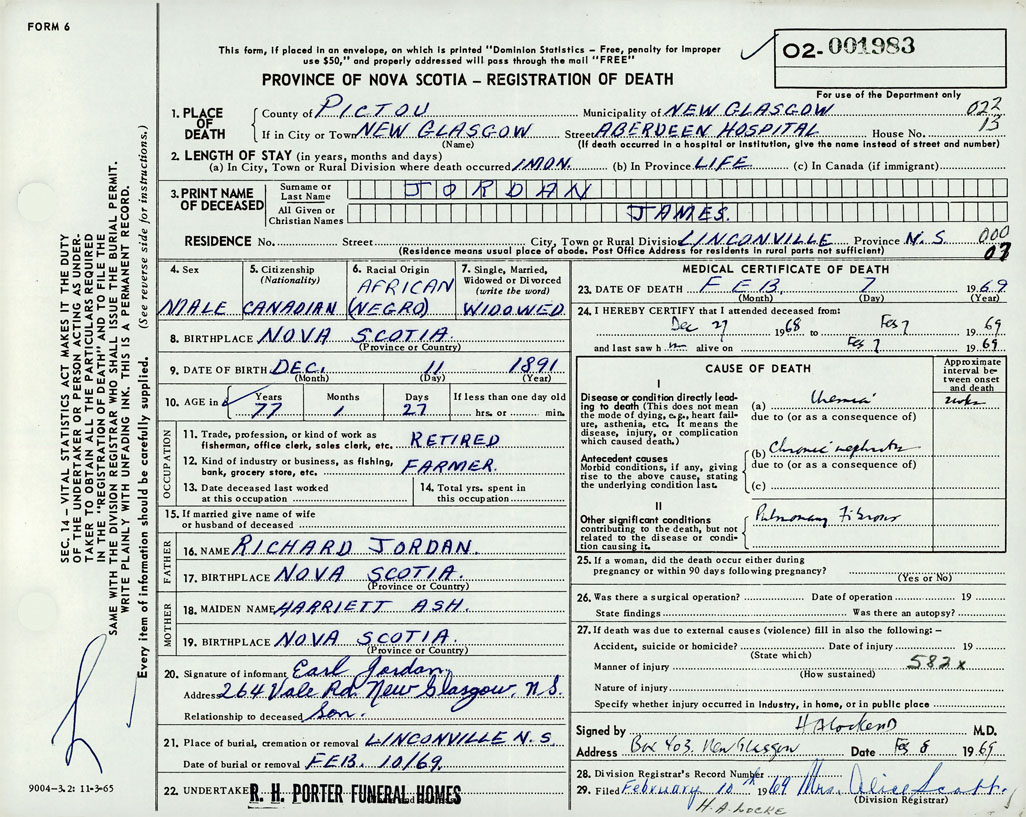 FORM 6
This form, if placed in an envelope, on which is printed "Dominion Statistics – Free, penalty for improper
use $50," and properly addressed will pass through the mail "FREE"
PROVINCE OF NOVA SCOTIA – REGISTRATION OF DEATH
02-001983
For use of the Department only
022
13
1. PLACE OF DEATH
County of PICTOU Municipality of NEW GLASGOW
If in City or Town NEW GLASGOW Street ABERDEEN HOSPITAL House No.
(Name) (If death occurred in a hospital or institution, give the name instead of street and number)
2. LENGTH OF STAY (in years, months and days)
(a) In City, Town or Rural Division where death occurred 1 MON. (b) In Province LIFE (c) In Canada (if immigrant)
3. PRINT NAME OF DECEASED
Surname or Last Name JORDAN
All Given or Christian Names JAMES.
RESIDENCE No. Street City, Town or Rural Division LINCONVILLE Province N.S. 000
(Residence means usual place of abode. Post Office Address for residents in rural parts not sufficient) 03
4. Sex MALE
5. Citizenship (Nationality) CANADIAN
6. Racial Origin AFRICAN (NEGRO)
7. Single, Married, Widowed or Divorced (write the word) WIDOWED
8. BIRTHPLACE NOVA SCOTIA
(Province or Country)
9. DATE OF BIRTH DEC. 11 1891
(Month) (Day) (Year)
10. AGE in Years Months Days If less than one day old
77 1 27 hrs. or min.
OCCUPATION
11. Trade, profession, or kind of work as
fisherman, office clerk, sales clerk, etc. RETIRED
12. Kind of industry or business, as fishing,
bank, grocery store, etc. FARMER.
13. Date deceased last worked
at this occupation
14. Total yrs. spent in
this occupation
15. If married give name of wife
or husband of deceased
FATHER
16. NAME RICHARD JORDAN.
17. BIRTHPLACE NOVA SCOTIA.
(Province or Country)
MOTHER
18. MAIDEN NAME HARRIETT ASH.
19. BIRTHPLACE NOVA SCOTIA.
(Province or Country)
20. Signature of informant Earl Jordan
Address 264 Vale Rd. New Glasgow, N.S.
Relationship to deceased Son.
21. Place of burial, cremation or removal LINCONVILLE N.S.
Date of burial or removal FEB. 10/69.
22. UNDERTAKER R. H. PORTER FUNERAL HOMES
MEDICAL CERTIFICATE OF DEATH
23. DATE OF DEATH FEB. 7 1969
(Month) (Day) (Year)
24. I HEREBY CERTIFY that I attended deceased from:
Dec 27 1968 to Feb 7 1969
and last saw h im alive on Feb 7 1969
CAUSE OF DEATH
Approximate interval between onset and death
I
Disease or condition directly leading to death (This does not
mean the mode of dying, e.g., heart failure,
asthenia, etc. It means the
disease, injury, or complication
which caused death.)
(a) Uremia weeks
due to (or as a consequence of)
Antecedent causes
Morbid conditions, if any, giving
rise to the above cause, stating
the underlying condition last.
(b) Chronic nephritis
due to (or as a consequence of)
(c)
II
Other significant conditions
contributing to the death, but not
related to the disease or condition
causing it.
Pulmonary Fibrosis
25. If a woman, did the death occur either during
pregnancy or within 90 days following pregnancy?
(Yes or No)
26. Was there a surgical operation? Date of operation 19
State findings Was there an autopsy?
27. If death was due to external causes (violence) fill in also the following: –
Accident, suicide or homicide? Date of injury 19
(State which)
Manner of injury 582x
(How sustained)
Nature of injury
Specify whether injury occurred in industry, in home, or in public place
Signed by H A Locke MD M.D.
Address Box 403. New Glasgow Date Feb 8 1969
28. Division Registrar's Record Number
29. Filed February 10th 1969 Mrs. Alice Scott.
(Division Registrar)
H.A. LOCKE
9004-3.2: 11-3-65
SEC. 14 – VITAL STATISTICS ACT MAKES IT THE DUTY
OF THE UNDERTAKER OR PERSON ACTING AS UNDER-
TAKER TO OBTAIN ALL THE PARTICULARS REQUIRED
IN THE "REGISTRATION OF DEATH" AND TO FILE THE
SAME WITH THE DIVISION REGISTRAR WHO SHALL ISSUE THE BURIAL PERMIT.
WRITE PLAINLY WITH UNFADING INK. THIS IS A PERMANENT RECORD.
Every item of information should be carefully supplied. (See reverse side for instructions.)